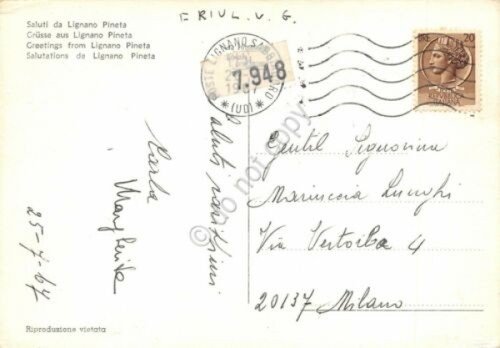 FRIUL. V. G.
Saluti da Lignano Pineta
Grüsse aus Lignano Pineta
Greetings from Lignano Pineta
Salutations da Lignano Pineta
LIGNANO SABBIADORO
(UD)
7.948
20
Saluti carissimi
Carla
Margherita
25-7-67
Gentil Signorina
Mariuccia Lunghi
Via Vertoiba 4
20137 Milano
Riproduzione vietata
do not copy